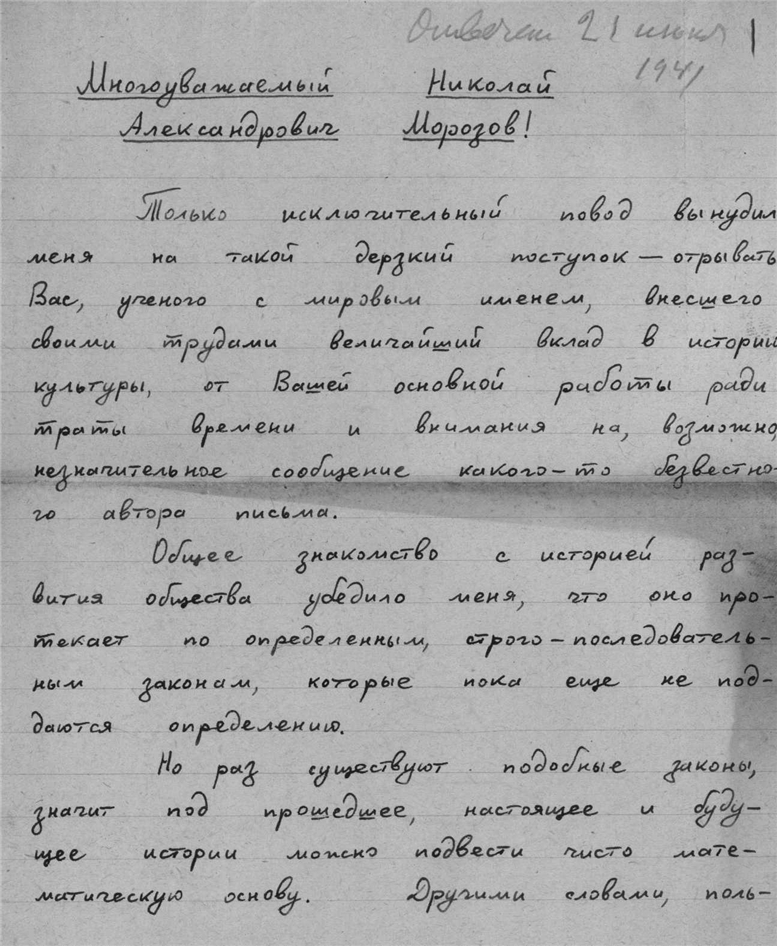 Отвечен 21 июня 1
1941
Многоуважаемый Николай
Александрович Морозов!
Только исключительный повод вынудил
меня на такой дерзкий поступок — отрывать
Вас, ученого с мировым именем, внесшего
своими трудами величайший вклад в истории
культуры, от Вашей основной работы ради
траты времени и внимания на, возможно,
незначительное сообщение какого-то безвестно-
го автора письма.
Общее знакомство с историей раз-
вития общества убедило меня, что оно про-
текает по определенным, строго-последователь-
ным законам, которые пока еще не под-
даются определению.
Но раз существуют подобные законы,
значит под прошедшее, настоящее и буду-
щее истории можно подвести чисто мате-
матическую основу. Другими словами, поль-